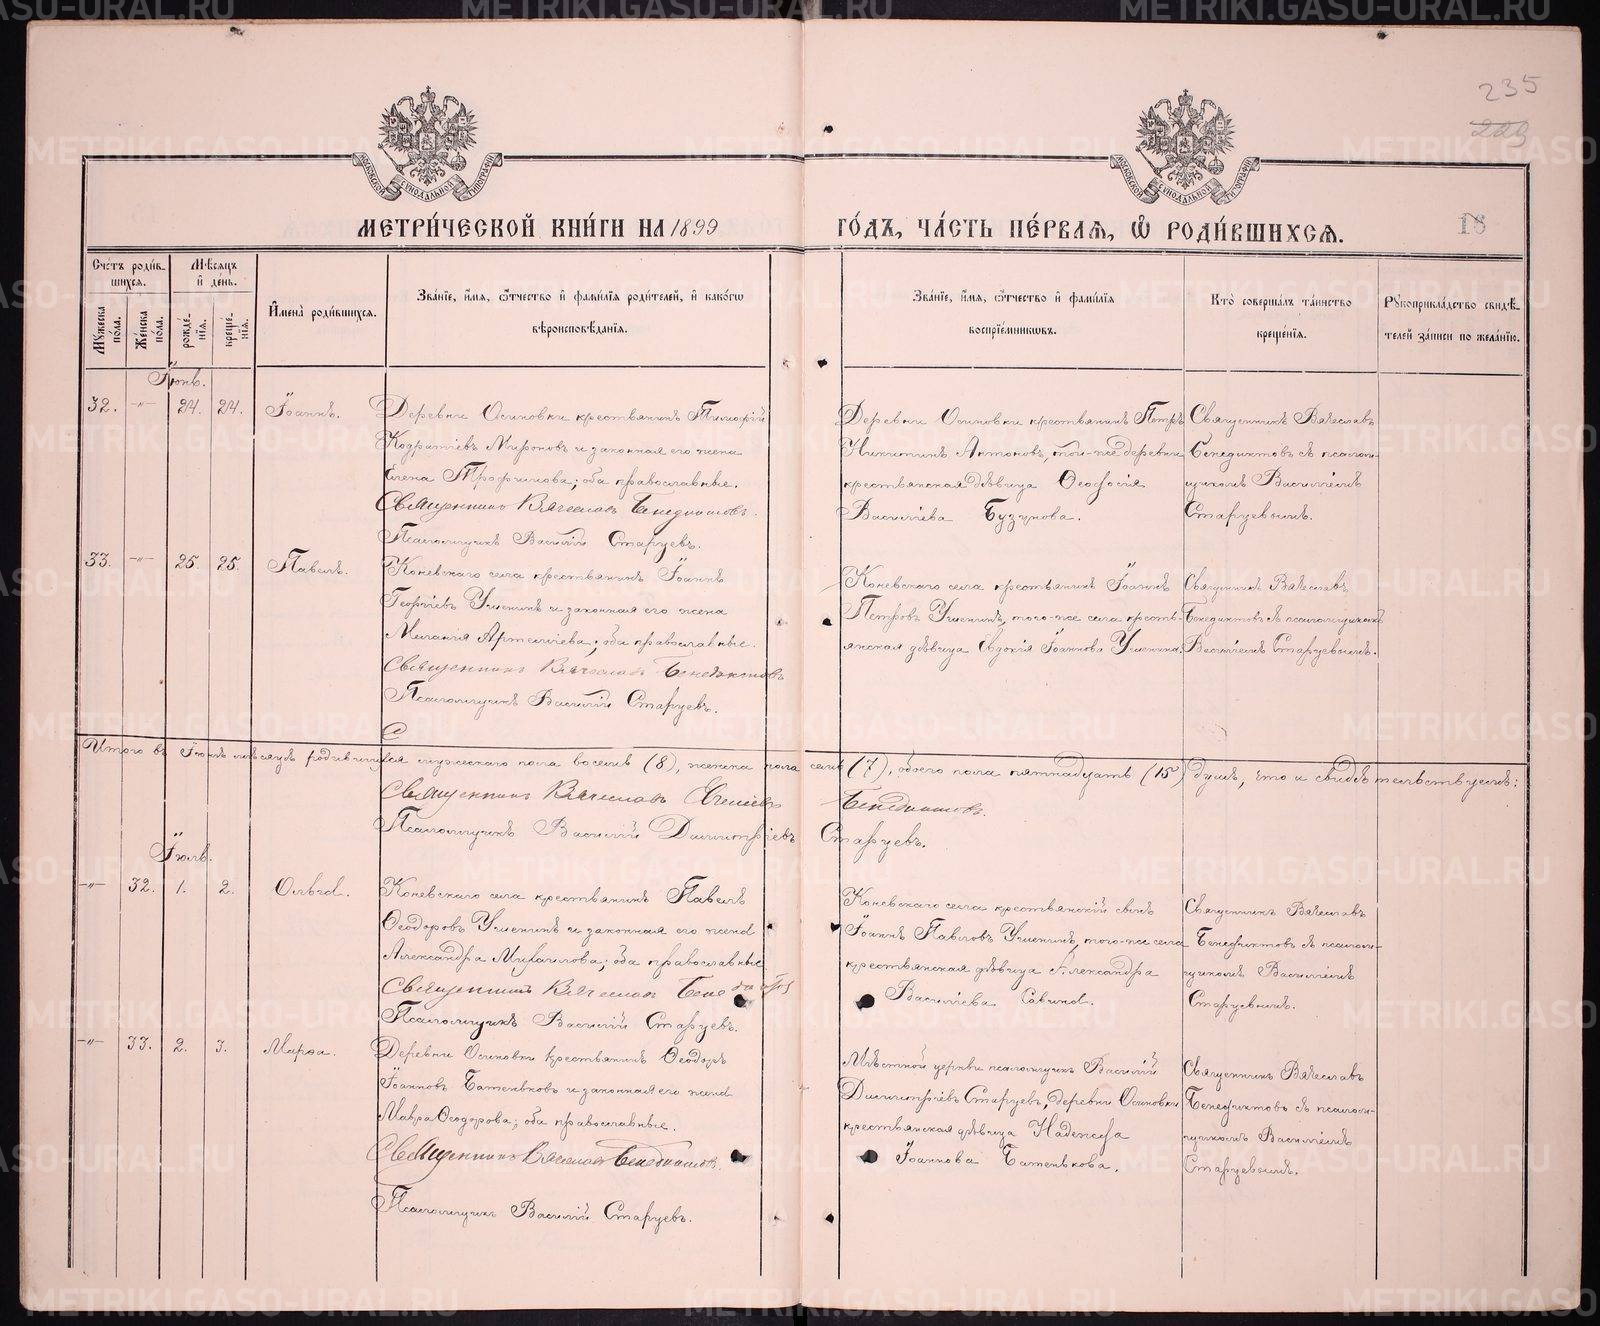 235
209
МЕТРИ́ЧЕСКОЙ КНИ́ГИ НА 1899
ГО́ДЪ, ЧА́СТЬ ПЕ́РВАѦ, Ѡ҆ РОДИ́ВШИХСѦ.
18
Сче́тъ роди́в-
шихся.
Мѣ́сяцъ
и҆ де́нь.
И҆мена̀ роди́вшихся.
Зва́нїе, и҆́мя, ѻ҆́тчество и҆ фами́лїя роди́телей, и҆ како́гѡ
вѣроисповѣ́данїя.
Зва́нїе, и҆́мя, ѻ҆́тчество и҆ фами́лїя
воспрїе́мникѡвъ.
Кто̀ соверша́лъ та́инство
креще́нїя.
Рꙋкоприкла́дство свидѣ́-
телей за́писи по жела́нїю.
Мꙋ́жеска
по́ла.
Же́нска
по́ла.
рожде́-
нїя.
креще́-
нїя.
Іюнь.
32. -"- 24. 24. Іоаннъ.
Деревни Осиновки крестьянинъ Тимофій
Кодратіевъ Миронов и законная его жена
Елена Трофимова; оба православные.
Священникъ Вячеславъ Бенедиктовъ.
Псаломщикъ Василій Старцевъ.
Деревни Осиновки крестьянинъ Петръ
Никитинъ Антоновъ, той-же деревни
крестьянская дѣвица Ѳеодосія
Васильева Бузунова.
Священникъ Вячеславъ
Бенедиктовъ съ псалом-
щикомъ Василіемъ
Старцевымъ.
33. -"- 25. 25. Павелъ.
Коневскаго села крестьянинъ Іоаннъ
Георгіевъ Усенинъ и законная его жена
Меланія Артеміева; оба православные.
Священникъ Вячеславъ Бенедиктовъ
Псаломщикъ Василій Старцевъ.
Коневскаго села крестьянинъ Іоаннъ
Петровъ Усенинъ, того-же села кресть-
янская дѣвица Евдокія Іоаннова Усенина.
Священникъ Вячеславъ
Бенедиктовъ съ псаломщикомъ
Василіемъ Старцевымъ.
Итого въ Іюнѣ мѣсяцѣ родившихся мужескаго пола восемь (8), женска пола семь (7), обоего пола пятнадцать (15) душъ, что и свидѣтельствуемъ:
Священникъ Вячеславъ Бенедиктовъ.
Псаломщикъ Василій Димитріевъ Старцевъ.
Іюль.
-"- 32. 1. 2. Ольга.
Коневскаго села крестьянинъ Павелъ
Ѳеодоровъ Усенинъ и законная его жена
Александра Михаилова; оба православные
Священникъ Вячеславъ Бенедиктовъ
Псаломщикъ Василій Старцевъ.
Коневскаго села крестьянскій сынъ
Іоаннъ Павловъ Усенинъ, того-же села
крестьянская дѣвица Александра
Васильева Савина.
Священникъ Вячеславъ
Бенедиктовъ съ псалом-
щикомъ Василіемъ
Старцевымъ.
-"- 33. 2. 3. Марѳа.
Деревни Осиновки крестьянинъ Ѳеодоръ
Іоанновъ Батеньковъ и законная его жена
Мавра Ѳеодорова; оба православные.
Священникъ Вячеславъ Бенедиктовъ.
Псаломщикъ Василій Старцевъ.
Мѣстной церкви псаломщикъ Василій
Димитріевъ Старцевъ, деревни Осиновки
крестьянская дѣвица Надежда
Іоаннова Батенькова.
Священникъ Вячеславъ
Бенедиктовъ съ псалом-
щикомъ Василіемъ
Старцевымъ.
METRIKI.GASO-URAL.RU